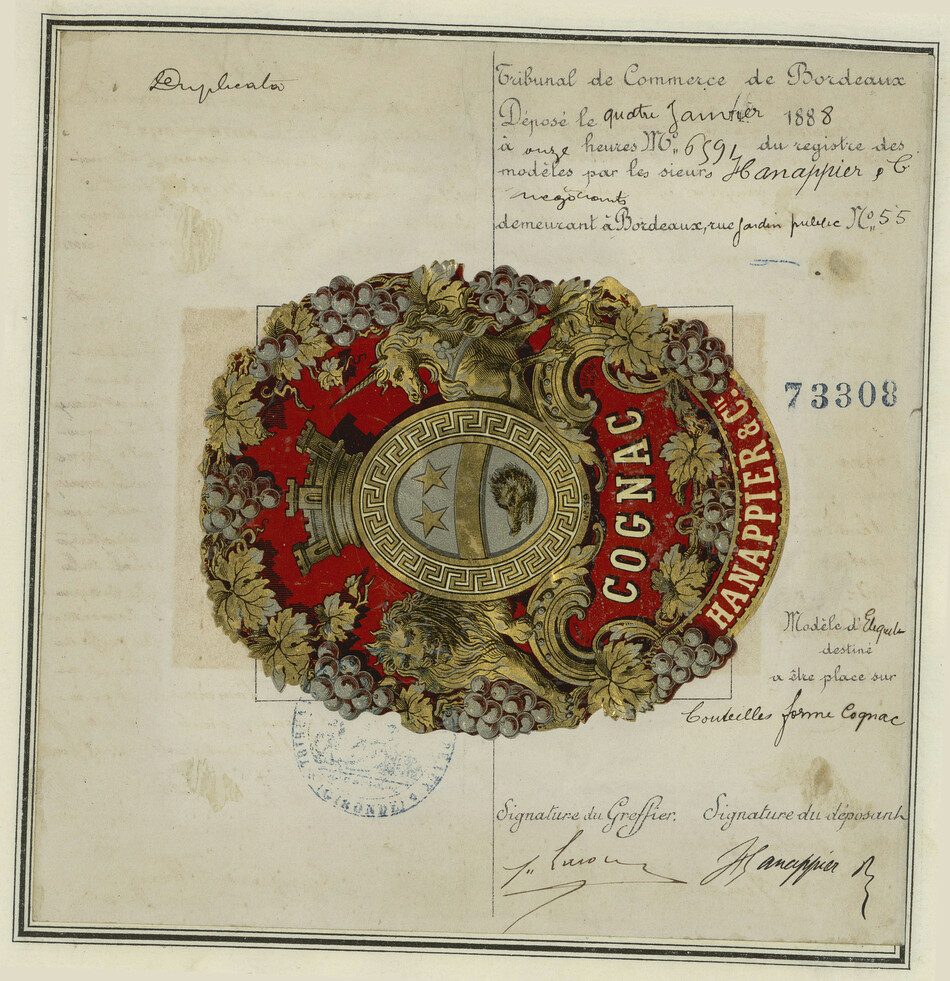 Duplicata
Tribunal de Commerce de Bordeaux
Déposé le quatre Janvier 1888
à onze heures No. 6591 du registre des
modèles par les sieurs Hanappier & C
negociants
demeurant à Bordeaux, rue Jardin public No. 55
73308
COGNAC
HANAPPIER & CIE.
Modèle d'Etiquette
destiné
a être placé sur
bouteilles forme Cognac
GIRONDE
Signature du Greffier. Signature du déposant
Hanappier